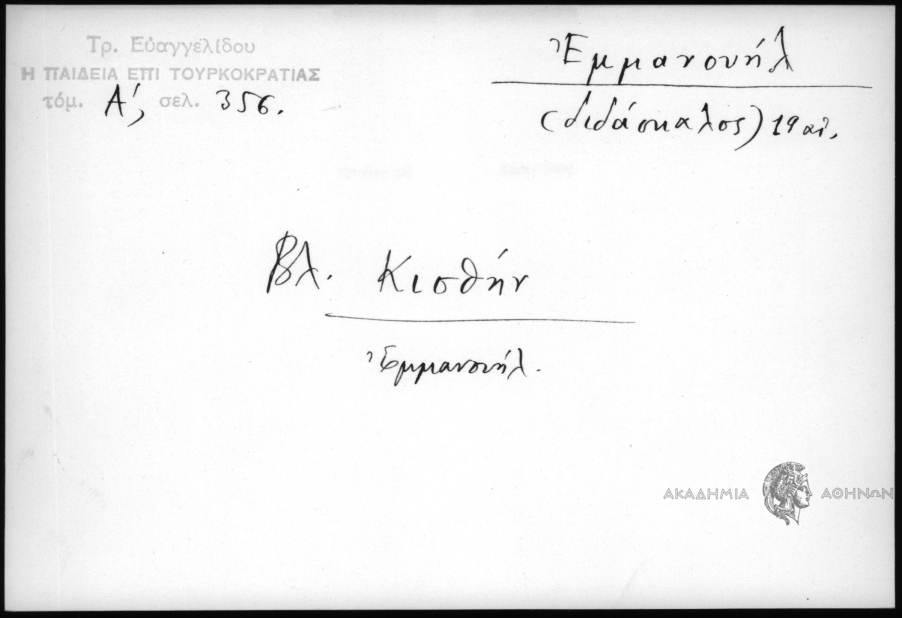 Τρ. Εὐαγγελίδου
Η ΠΑΙΔΕΙΑ ΕΠΙ ΤΟΥΡΚΟΚΡΑΤΙΑΣ
τόμ. Α΄, σελ. 356.
Ἐμμανουήλ
(διδάσκαλος) 19 αἰ.
Βλ. Κισθήν
Ἐμμανουήλ.
ΑΚΑΔΗΜΙΑ ΑΘΗΝΩΝ